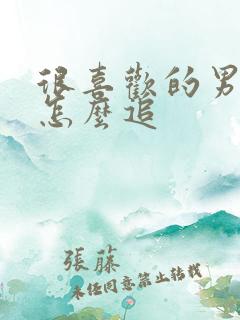 很喜歡的男
怎麼追
張藤
未经同意禁止转载